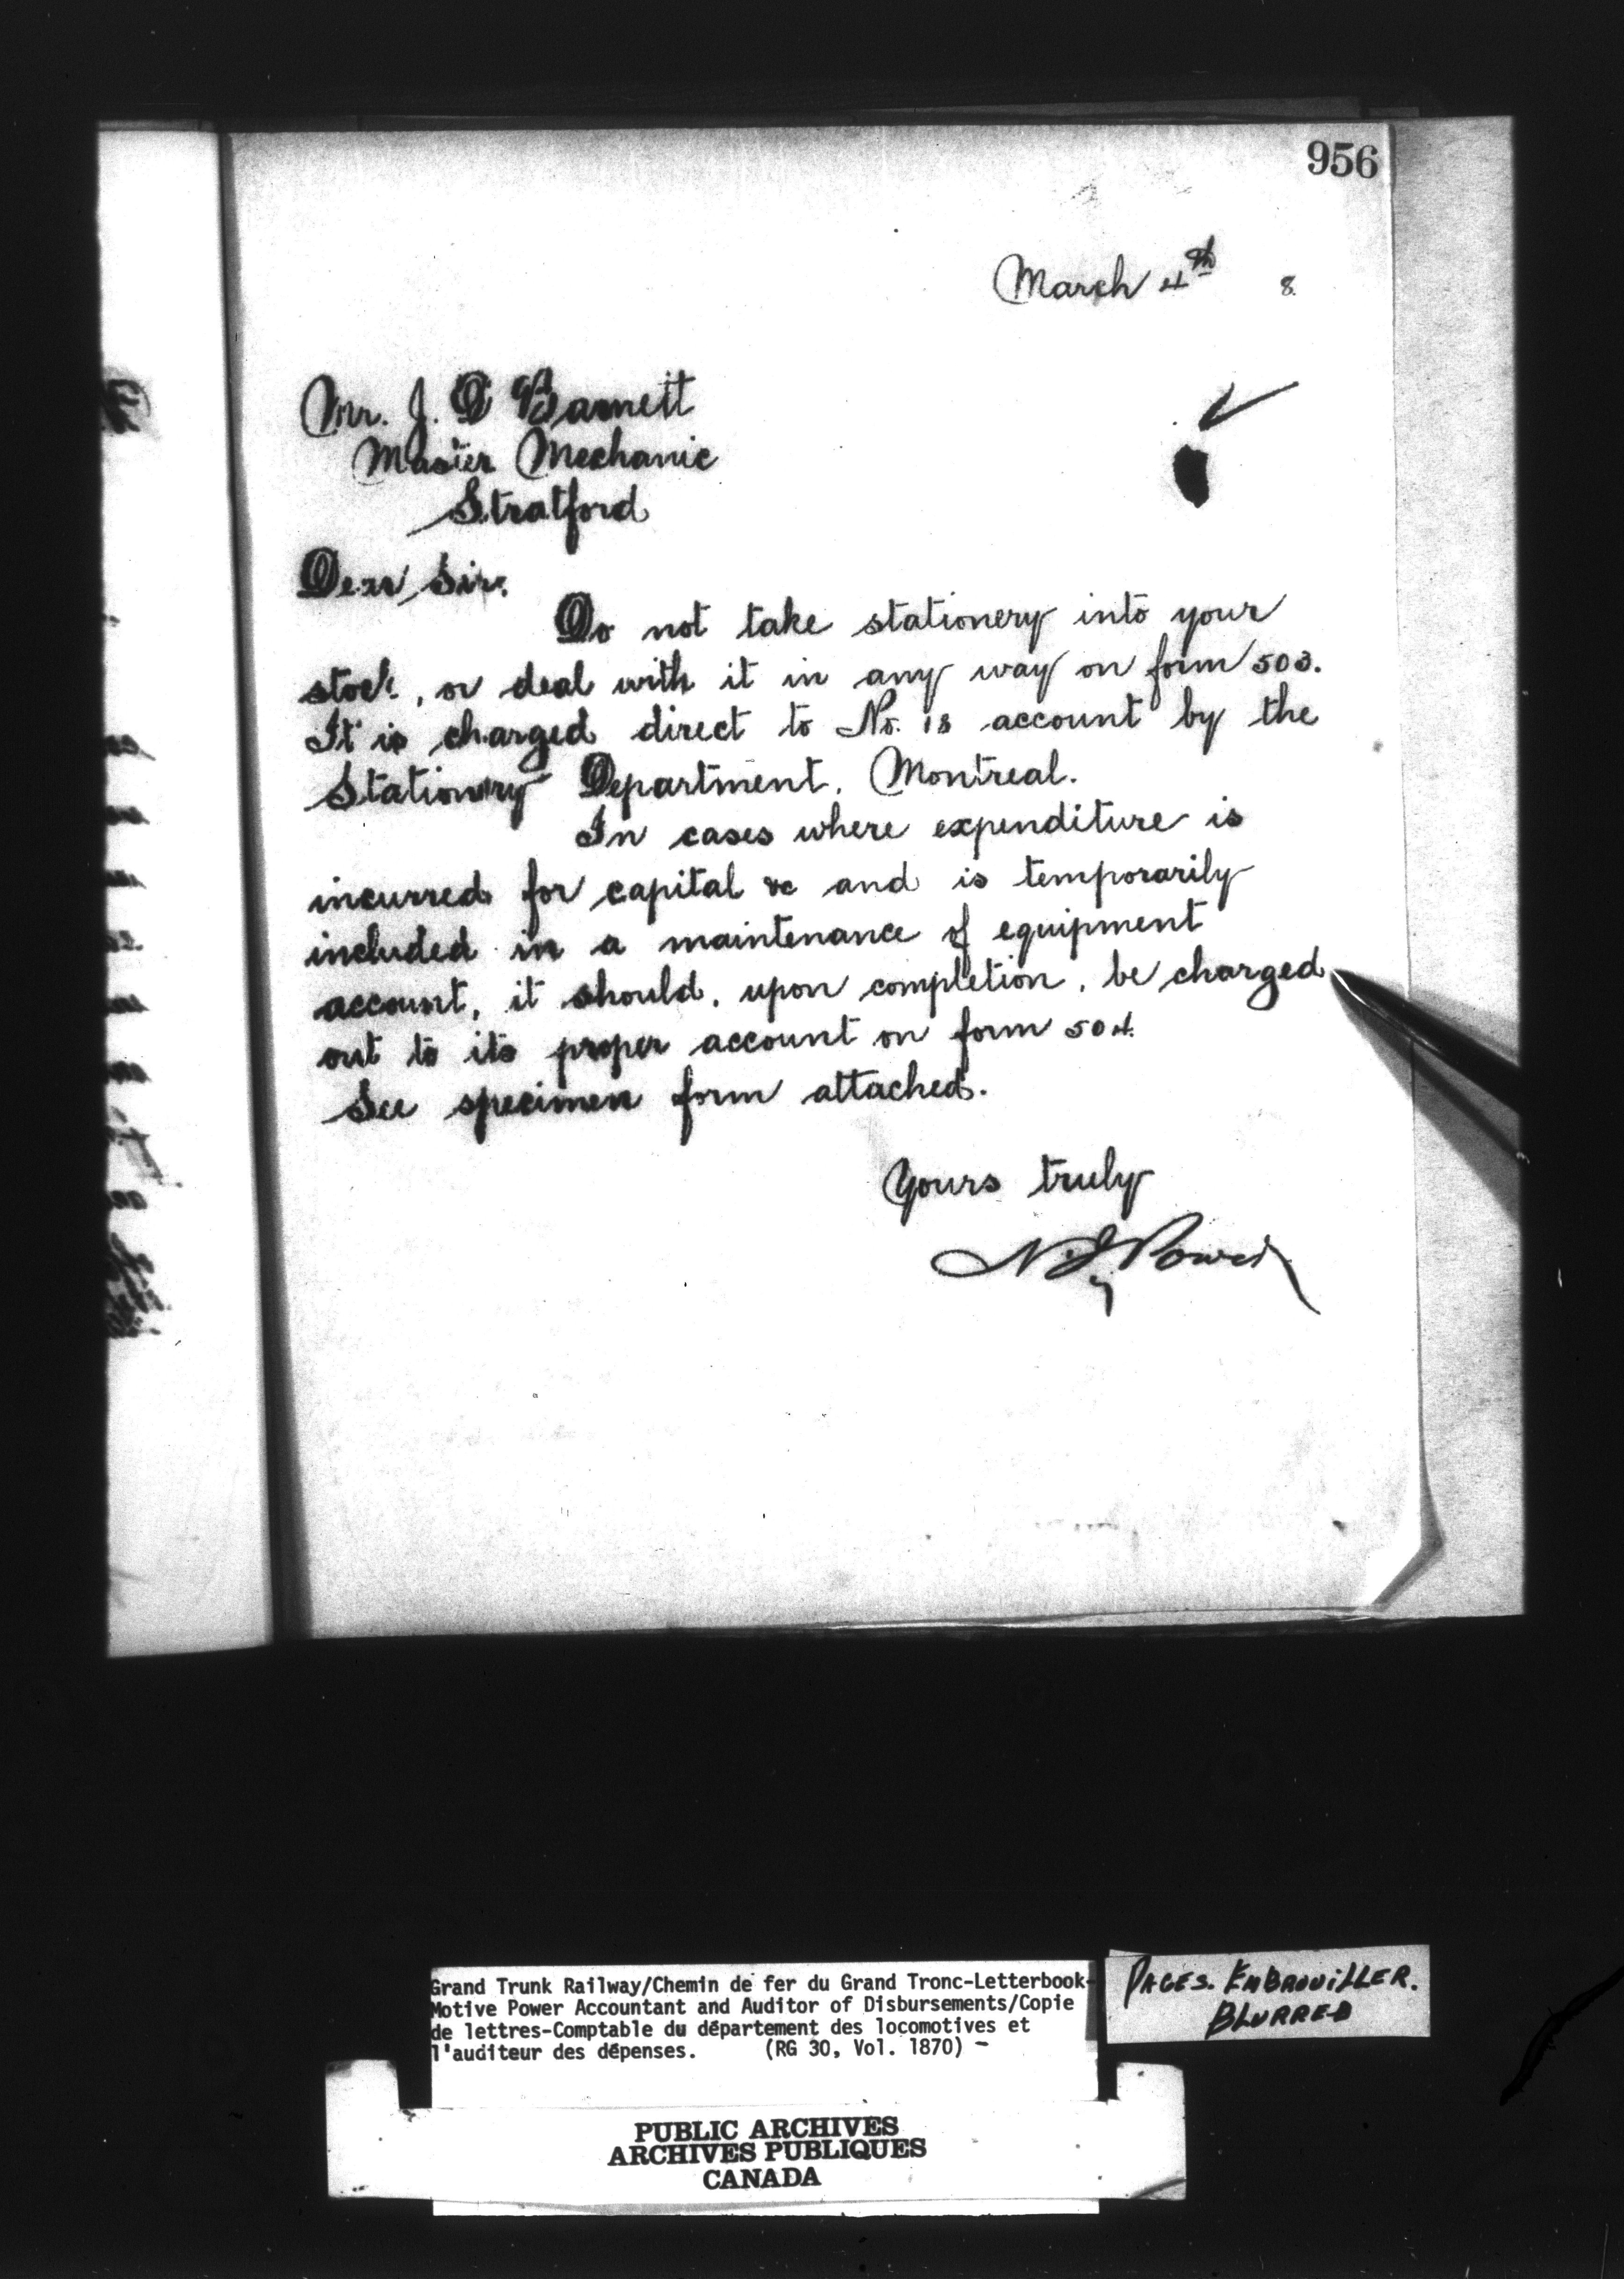 956
March 4th 8.
Mr. J. D Barnett
Master Mechanic
Stratford
Dear Sir.
Do not take stationery into your
stock, or deal with it in any way on form 503.
It is charged direct to No. 18 account by the
Stationery Department, Montreal.
In cases where expenditure is
incurred for capital &c and is temporarily
included in a maintenance of equipment
account, it should, upon completion, be charged
out to its proper account on form 504.
See specimen form attached.
Yours truly
N. J. Power
Grand Trunk Railway/Chemin de fer du Grand Tronc-Letterbook-
Motive Power Accountant and Auditor of Disbursements/Copie
de lettres-Comptable du département des locomotives et
l'auditeur des dépenses. (RG 30, Vol. 1870) -
PAGES. EMBROUILLER.
BLURRED
PUBLIC ARCHIVES
ARCHIVES PUBLIQUES
CANADA